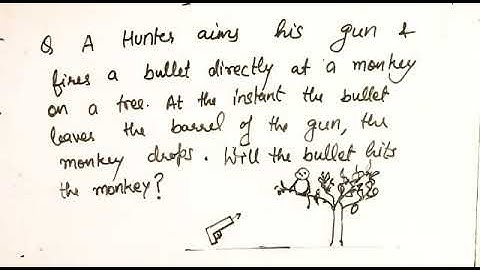 Q A Hunter aims his gun &
fires a bullet directly at a monkey
on a tree. At the instant the bullet
leaves the barrel of the gun, the
monkey drops. Will the bullet hits
the monkey?